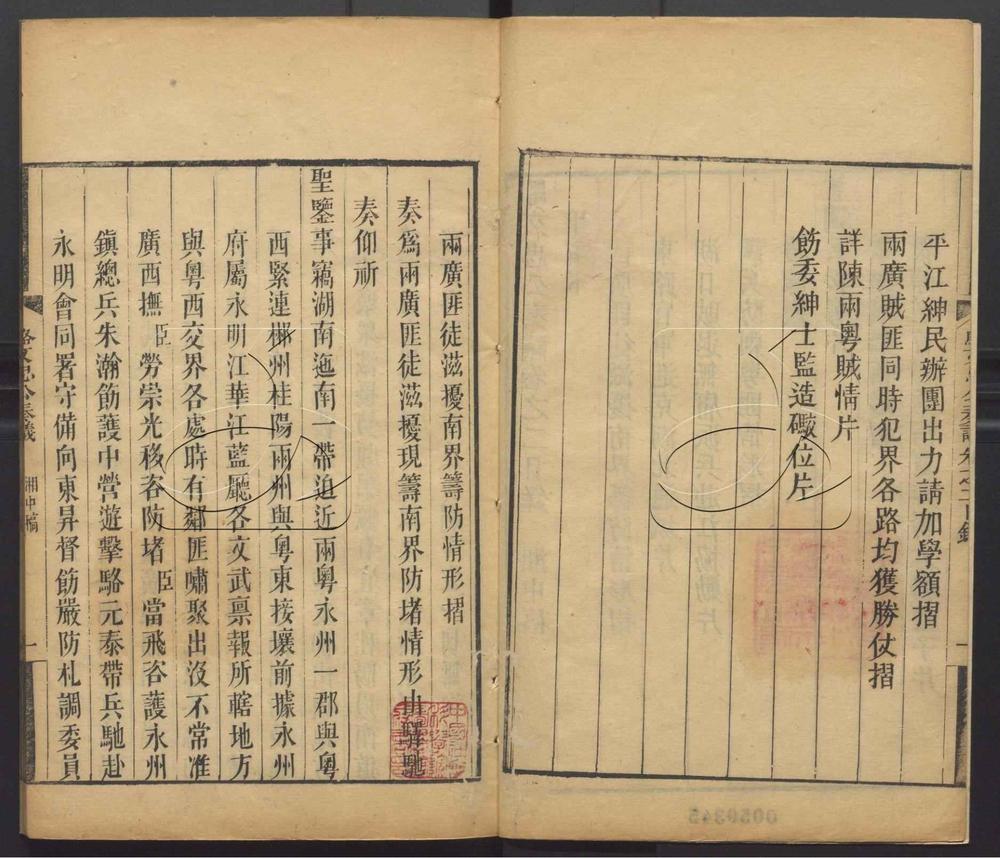 平江紳民辦團出力請加學額摺
兩廣賊匪同時犯界各路均獲勝仗摺
詳陳兩粵賊情片
飭委紳士監造礮位片
兩廣匪徒滋擾南界籌防情形摺
奏爲兩廣匪徒滋擾現籌南界防堵情形由驛馳
奏仰祈
聖鑒事竊湖南迤南一帶迫近兩粵永州一郡與粵
西緊連郴州桂陽兩州與粵東接壤前據永州
府屬永明江華江藍廳各文武稟報所轄地方
與粵西交界各處時有鄰匪嘯聚出沒不常准
廣西撫臣勞崇光移咨防堵臣當飛咨護永州
鎮總兵朱瀚飭護中營遊擊駱元泰帶兵馳赴
永明會同署守備向東昇督飭嚴防札調委員
駱文忠公奏議 湘中稿 一
0050345